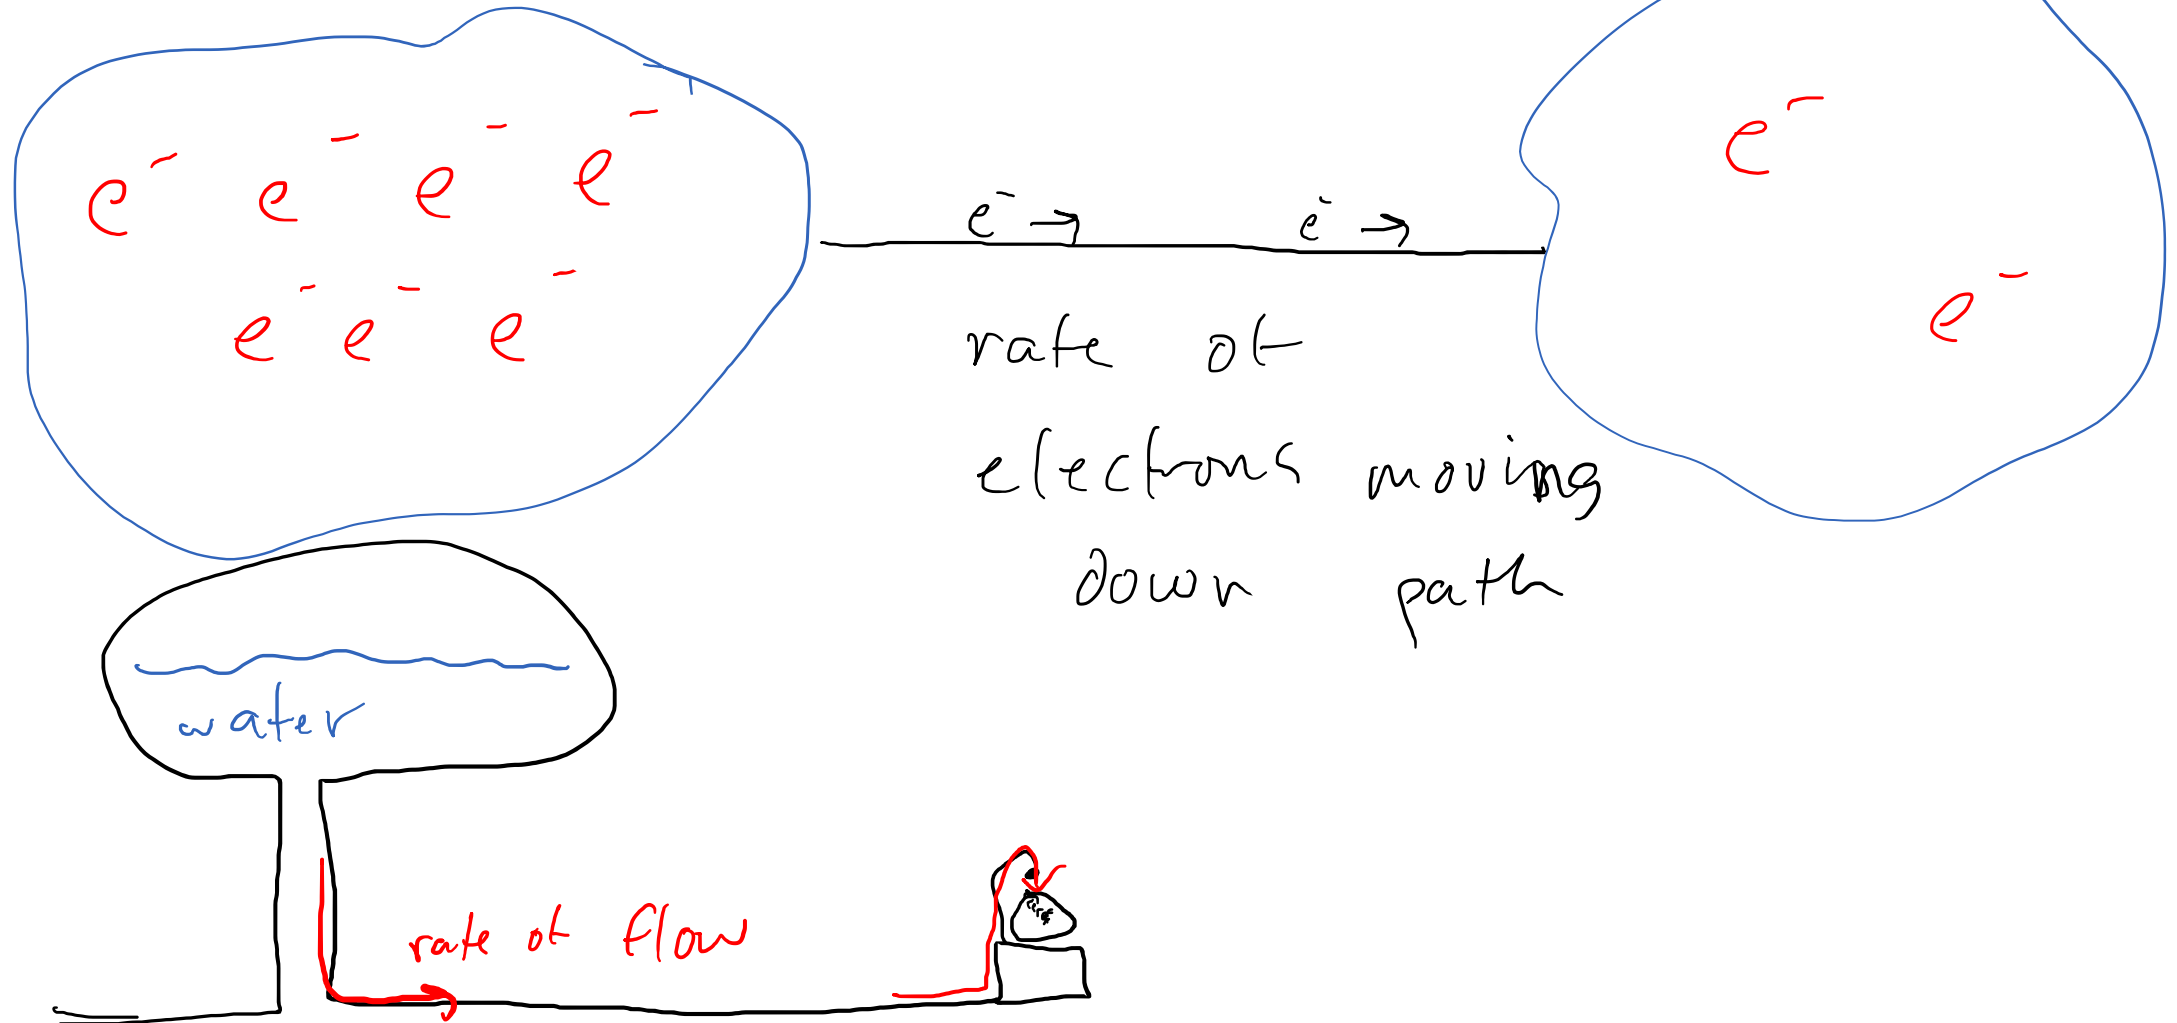 e⁻ e⁻ e⁻ e⁻
e⁻ e⁻ e⁻
e⁻ → e⁻ →
e⁻
e⁻
rate of
electrons moving
down path
water
rate of flow